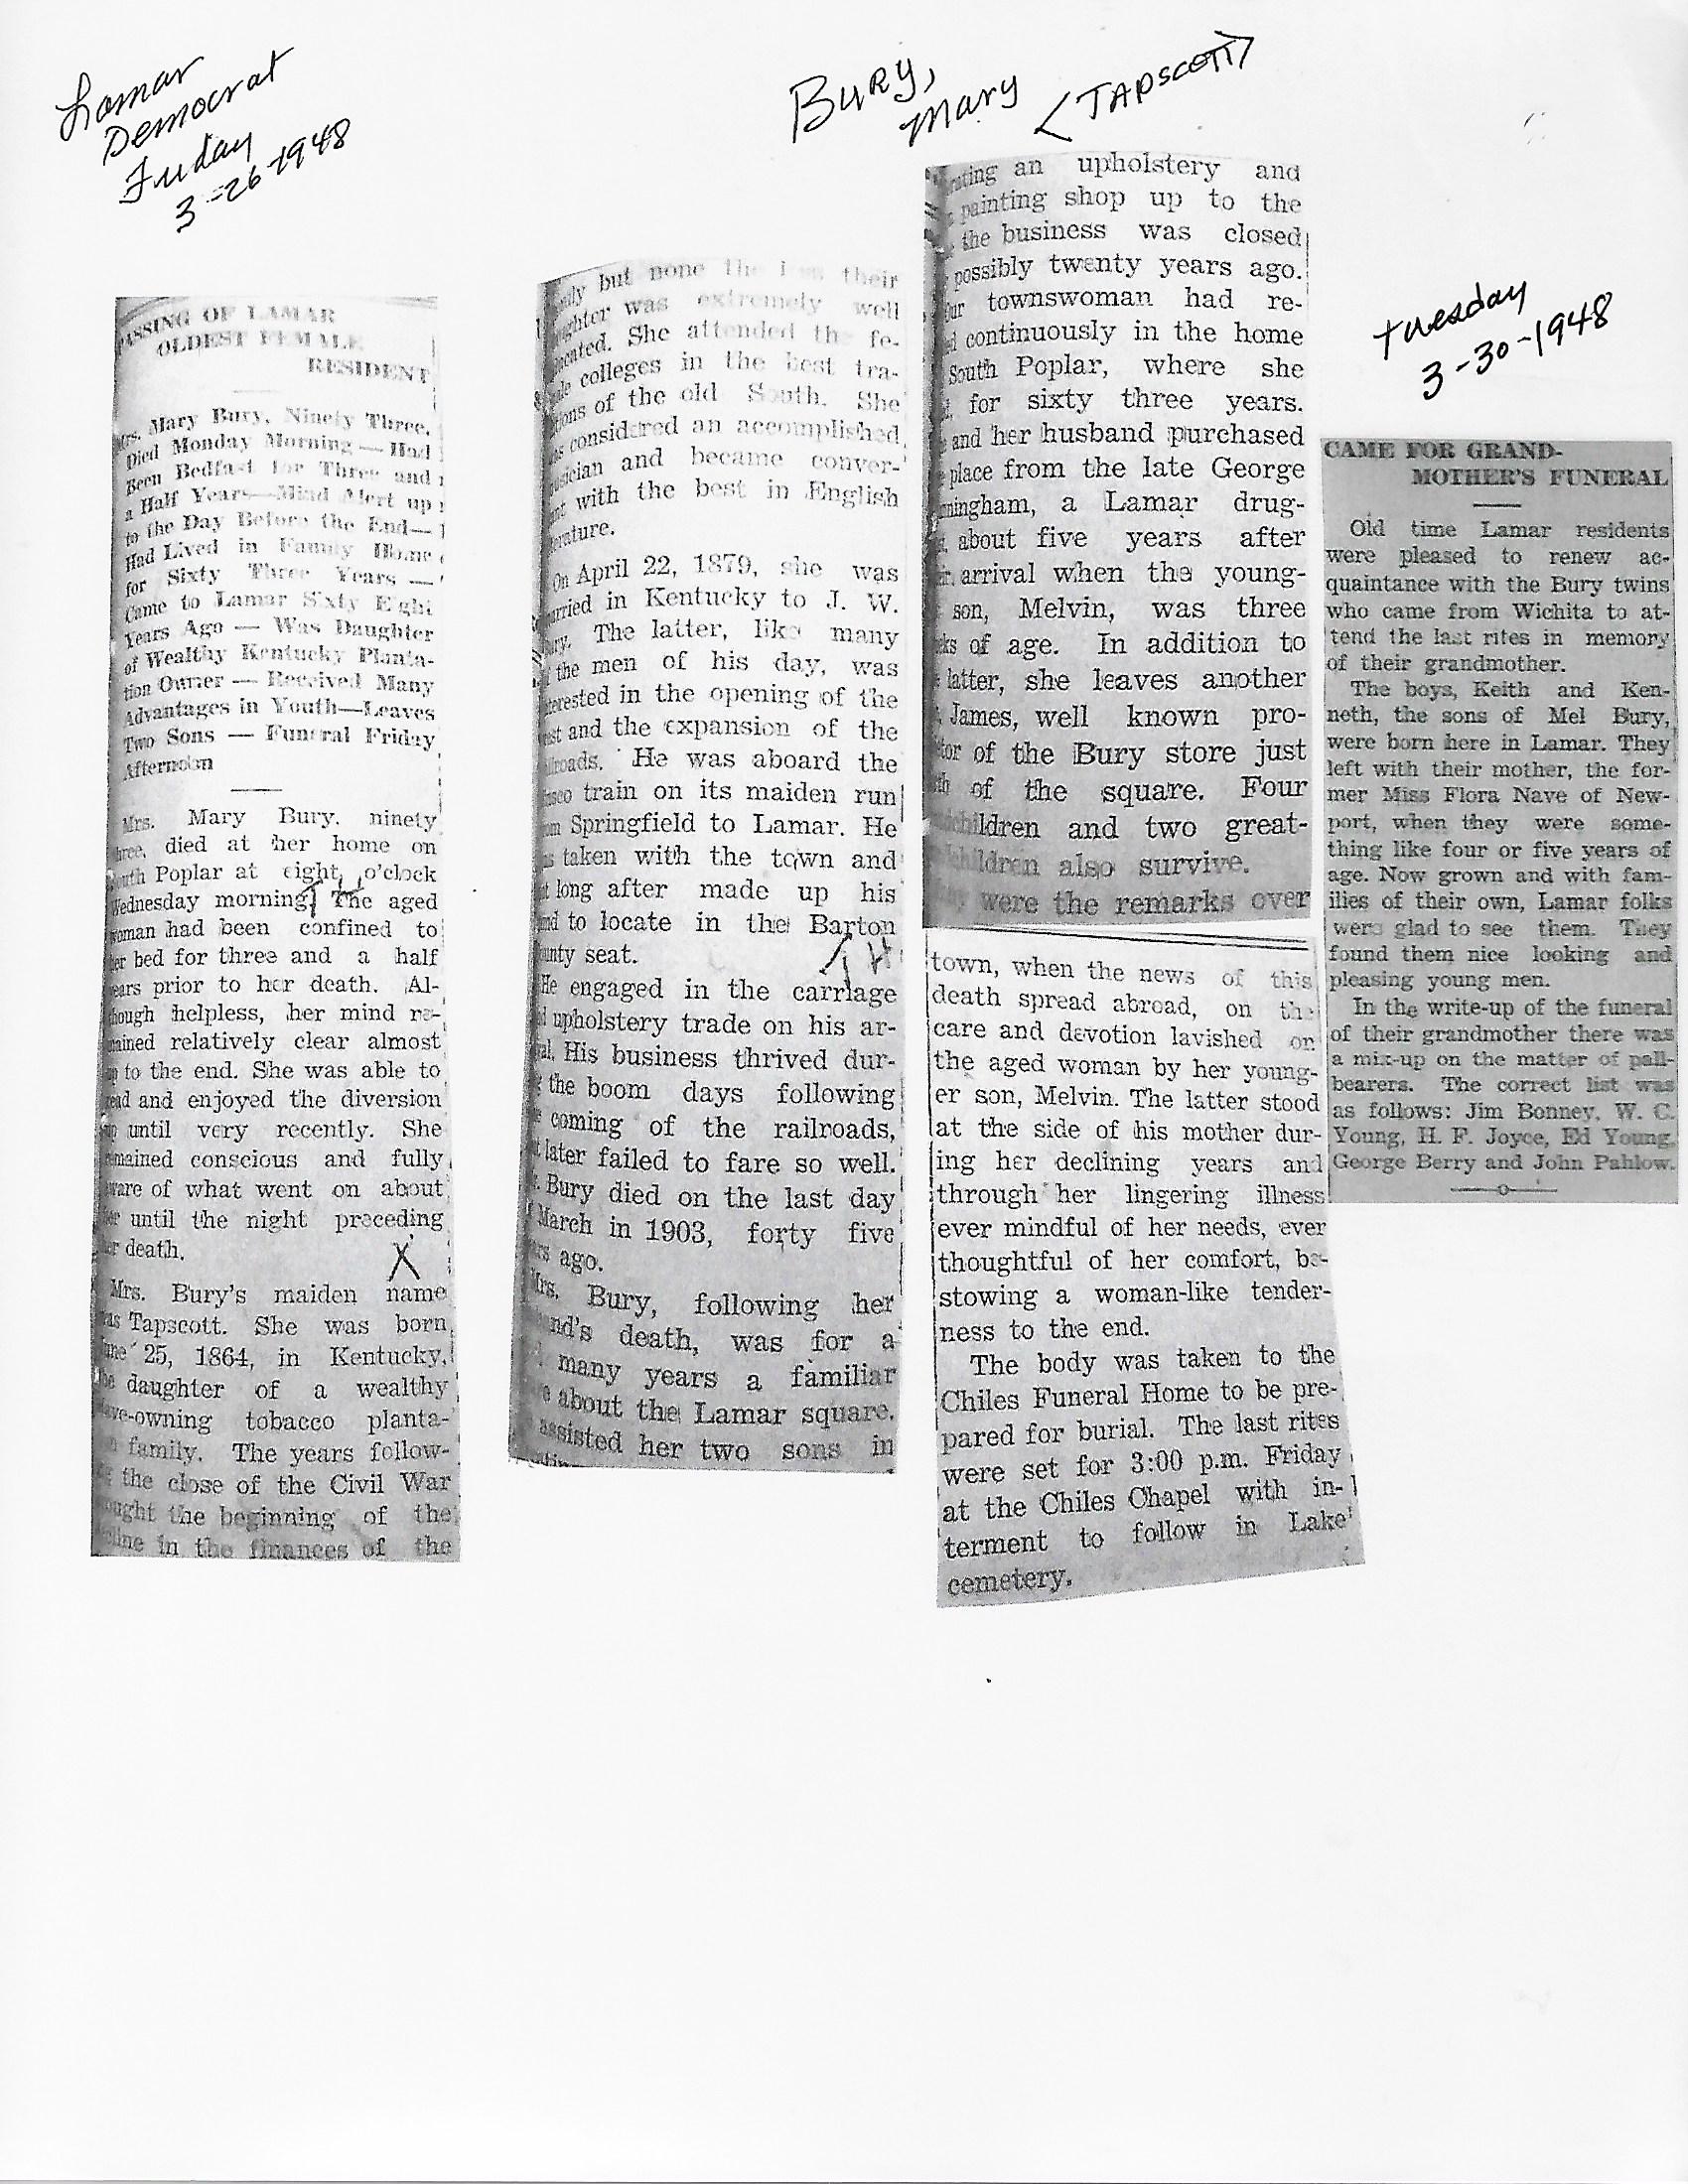 Lamar
Democrat
Friday
3-26-1948
Bury,
Mary
<TAPSCOTT>
Tuesday
3-30-1948
ASSING OF LAMAR
OLDEST FEMALE
RESIDENT
Mrs. Mary Bury, Ninety Three,
Died Monday Morning — Had
Been Bedfast for Three and
a Half Years—Mind Alert up
to the Day Before the End—
Had Lived in Family Home
for Sixty Three Years —
Came to Lamar Sixty Eight
Years Ago — Was Daughter
of Wealthy Kentucky Planta-
tion Owner — Received Many
Advantages in Youth—Leaves
Two Sons — Funeral Friday
Afternoon
Mrs. Mary Bury, ninety
hree, died at her home on
outh Poplar at eight o'clock
Wednesday morning. The aged
woman had been confined to
her bed for three and a half
ears prior to her death. Al-
hough helpless, her mind re-
mained relatively clear almost
up to the end. She was able to
read and enjoyed the diversion
up until very recently. She
emained conscious and fully
ware of what went on about
er until the night preceding
er death.
X
Mrs. Bury's maiden name
was Tapscott. She was born
une 25, 1864, in Kentucky,
he daughter of a wealthy
ave-owning tobacco planta-
n family. The years follow-
g the close of the Civil War
ought the beginning of the
cline in the finances of the
but none the their
ughter was extremely well
ucated. She attended the fe-
ale colleges in the best tra-
tions of the old South. She
as considered an accomplished
usician and became conver-
nt with the best in English
erature.
On April 22, 1879, she was
arried in Kentucky to J. W.
ury. The latter, like many
f the men of his day, was
terested in the opening of the
est and the expansion of the
ilroads. He was aboard the
isco train on its maiden run
om Springfield to Lamar. He
as taken with the town and
ot long after made up his
ind to locate in the Barton
ounty seat.
H
He engaged in the carriage
d upholstery trade on his ar-
val. His business thrived dur-
g the boom days following
e coming of the railroads,
t later failed to fare so well.
r. Bury died on the last day
f March in 1903, forty five
ars ago.
Mrs. Bury, following her
nd's death, was for a
many years a familiar
e about the Lamar square.
assisted her two sons in
rating an upholstery and
painting shop up to the
the business was closed
possibly twenty years ago.
our townswoman had re-
ed continuously in the home
South Poplar, where she
for sixty three years.
e and her husband purchased
place from the late George
nningham, a Lamar drug-
about five years after
ir arrival when the young-
son, Melvin, was three
eks of age. In addition to
e latter, she leaves another
James, well known pro-
tor of the Bury store just
th of the square. Four
dchildren and two great-
dchildren also survive.
were the remarks over
town, when the news of this
death spread abroad, on the
care and devotion lavished on
the aged woman by her young-
er son, Melvin. The latter stood
at the side of his mother dur-
ing her declining years and
through her lingering illness
ever mindful of her needs, ever
thoughtful of her comfort, be-
stowing a woman-like tender-
ness to the end.
The body was taken to the
Chiles Funeral Home to be pre-
pared for burial. The last rites
were set for 3:00 p.m. Friday
at the Chiles Chapel with in-
terment to follow in Lake
cemetery.
CAME FOR GRAND-
MOTHER'S FUNERAL
Old time Lamar residents
were pleased to renew ac-
quaintance with the Bury twins
who came from Wichita to at-
tend the last rites in memory
of their grandmother.
The boys, Keith and Ken-
neth, the sons of Mel Bury,
were born here in Lamar. They
left with their mother, the for-
mer Miss Flora Nave of New-
port, when they were some-
thing like four or five years of
age. Now grown and with fam-
ilies of their own, Lamar folks
were glad to see them. They
found them nice looking and
pleasing young men.
In the write-up of the funeral
of their grandmother there was
a mix-up on the matter of pall-
bearers. The correct list was
as follows: Jim Bonney, W. C.
Young, H. F. Joyce, Ed Young,
George Berry and John Pahlow.